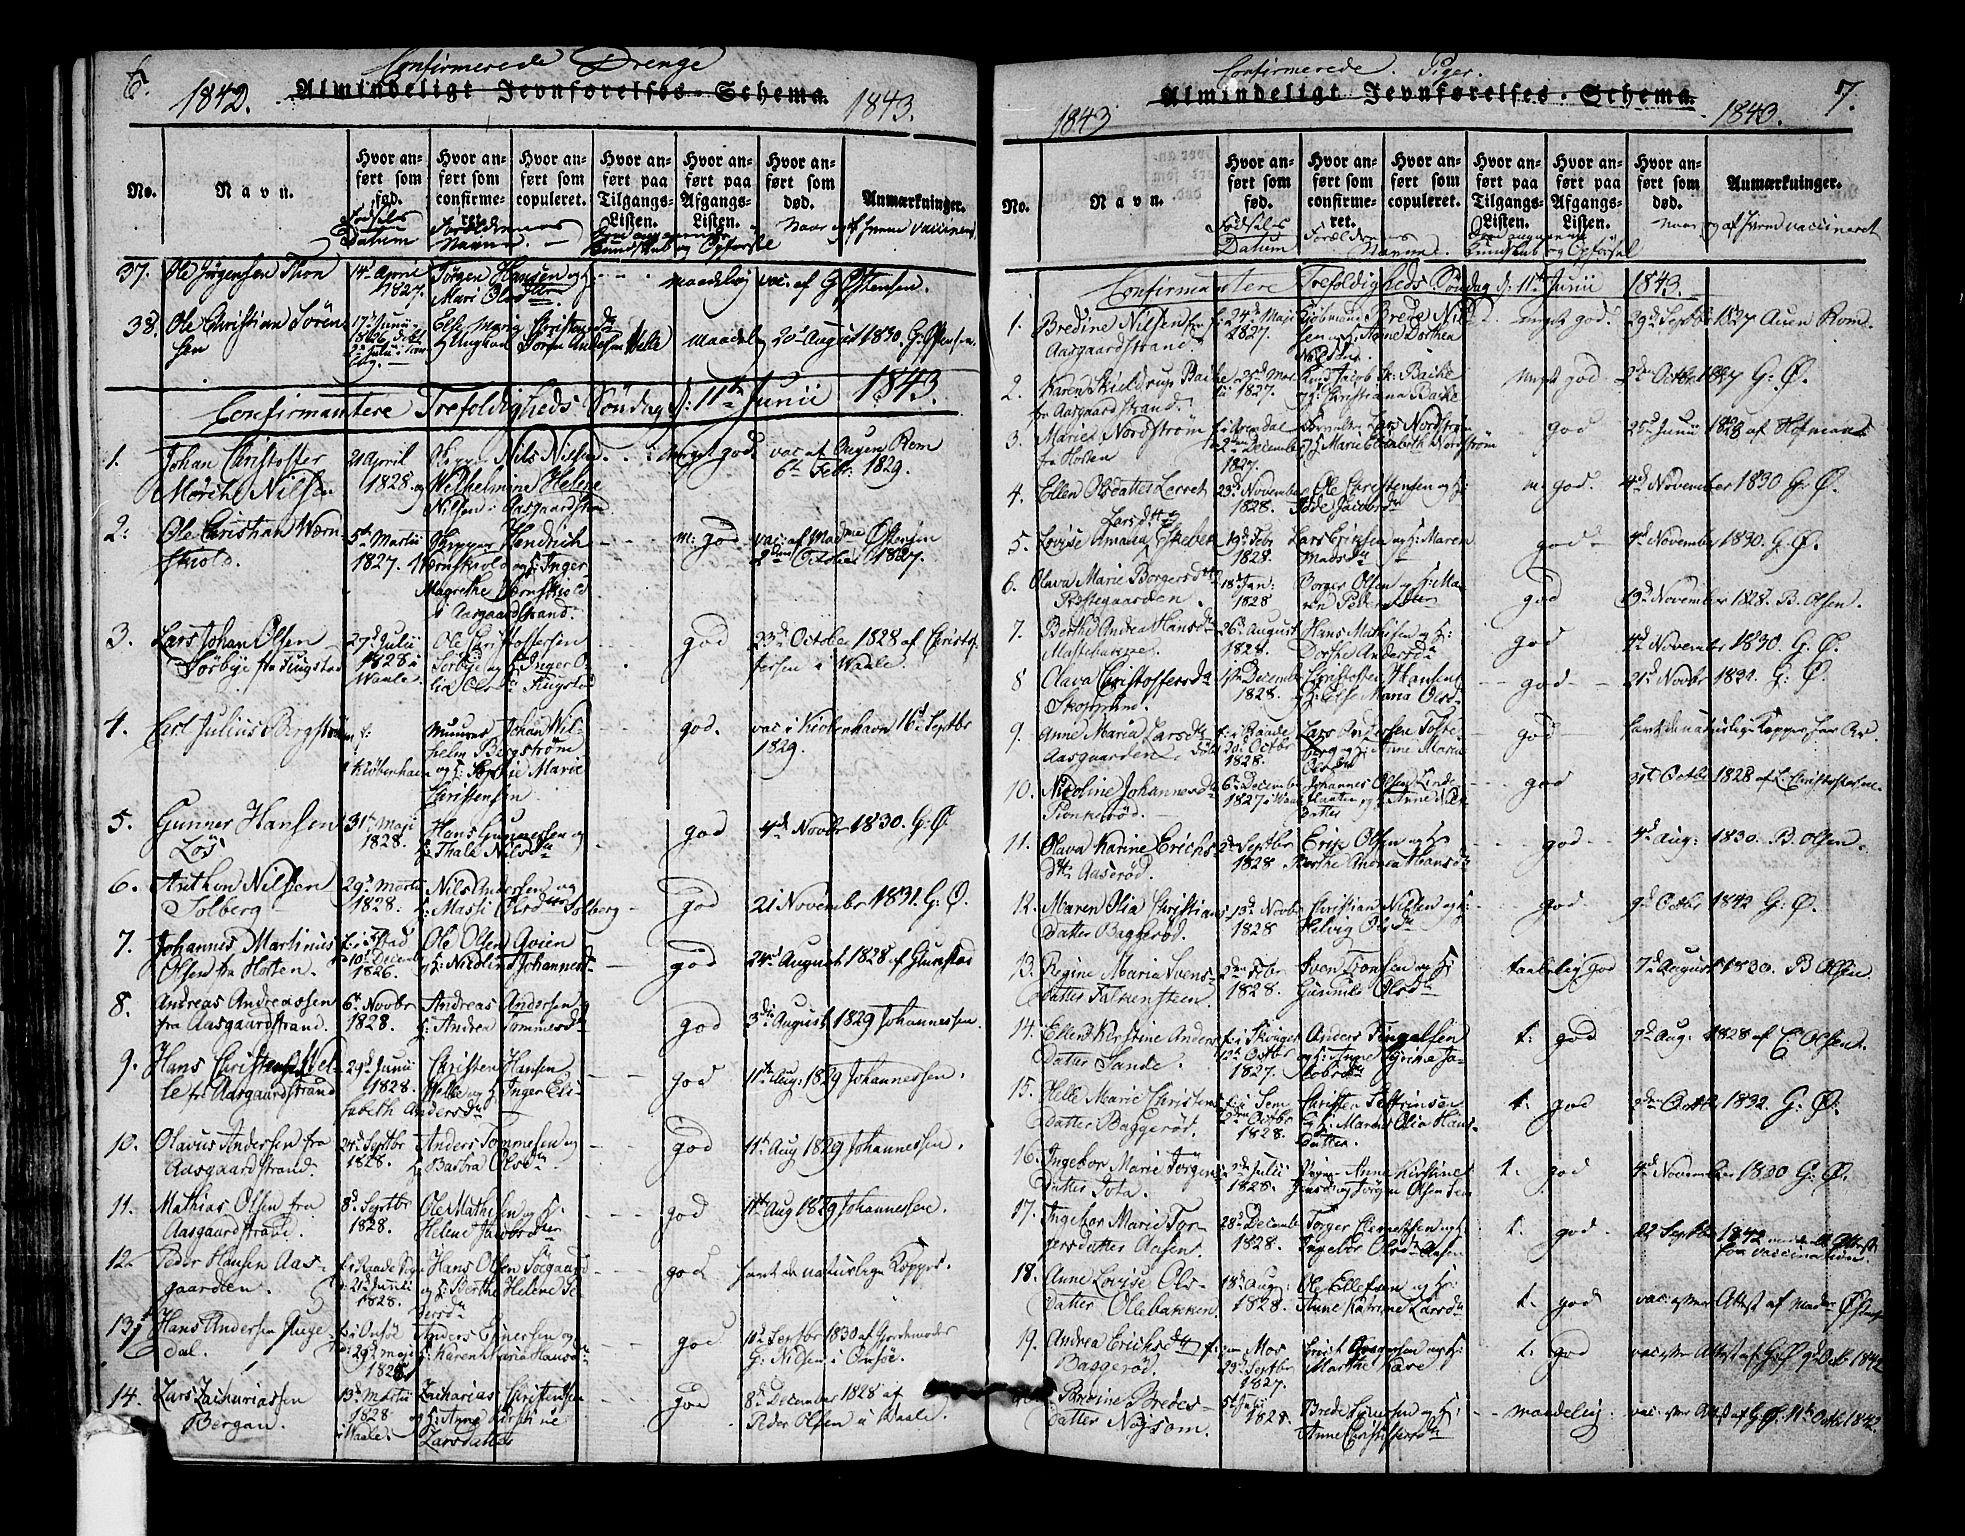 6.
Confirmerede Drenge
1842. Almindeligt Jevnførelses-Schema. 1843.
No.
Navn.
Hvor anført som fød.
Hvor anført som confirmeret.
Hvor anført som copuleret.
Hvor anført paa Tilgangs-Listen.
Hvor anført paa Afgangs-Listen.
Hvor anført som død.
Anmærkninger.
Fødsels Datum
Forældrenes Navne
Kundskab og Opførsel
Naar og af hvem vaccineret
37. Ole Jørgensen Thon
14d April 1827.
Jørgen Hansen og
Mari Olsdtter
maadelig
vac. af G. Østensen.
38. Ole Christian Sørensen
17d Junii 1826
Else Marie Christensd
Søren Andersen Melle
maadel
20d August 1830. G. Østensen.
Confirmantere Trefoldigheds Søndag d: 11te Junii 1843.
1. Johan Christoffer
Mørch Nilsen
21 April 1828.
Nils Nilsen
og Wilhelmine Helene
Nilsen i Aasgaardstrand
meget god
vac af Augen Rom
6te Febr: 1829.
2. Ole Christian Wærnskiold.
5te Martii 1827.
Skipper Hendrich
Wernskiold og H: Inger
Magrethe Wærnskiold
i Aasgaardstrand
m: god
vac. af Madme Østensen
2den October 1827.
3. Lars Johan Olsen
Sørbye fra Fuugstad
27d Julii 1828 i Waale
Ole Christoffersen
Sørbye og H: Inger O-
lia Olsd Fuugstad
god
23d October 1828 af Christof-
fersen i Waale.
4. Carl Julius Bergstrøm
f: i Kiøbenhavn
Muurer Johan Wil-
helm Bergstrøm
og H: Sophie Marie
Christensen
god.
vac i Kiøbenhavn 16d Septbr
1829.
5. Gunner Hansen
Løs
31te Maji 1828.
Hans Gunnersen og
H: Thale Nilsda
god
4d Novbr 1830. G: Ø
6. Anthon Nilsen
Solberg
29d Martii 1828.
Nils Andersen og
H: Massi Olsdtter Solberg
god
21 November 1831. G: Ø.
7. Johannes Martinus
Olsen fra Horten.
10d Decemb 1826.
Ole Olsen Gvien
og H: Nicoline Johannesd
god
24d August 1828 af Gunstad
8. Andreas Andreassen
fra Aasgaardstrand.
6te Novbr 1828.
Andreas Andersen
H: Andrea Tommesda
god
3die August 1829 Johannessen.
9. Hans Christensen Mel-
le fra Aasgaardstrand
29d Junii 1828.
Christen Hansen
Melle og H: Inger Eli-
sabeth Andersda
god
11te Aug: 1829 Johannessen.
10. Olavus Andersen fra
Aasgaardstrand.
24d Septbr 1828.
Anders Tommesen og
H: Barbra Olsda
god
11te Aug 1829 Johannessen.
11. Mathias Olsen fra
Aasgaardstrand.
8d Septbr 1828.
Ole Mathisen og H:
Helene Jacobsdtter
god
11te Aug 1829 Johannessen.
12. Peder Hansen Aas-
gaarden.
21d Junii 1828.
Hans Olsen Søegaard
og H: Berthe Helene Pe-
dersda
god
havt de naturlige Kopper.
13. Hans Andersen Auge-
dal.
f: i Onsøe
29d Maji 1828
Anders Einersen og
H: Karen Maria Hansd
god
10d Septbr 1830 af Jordemoder
G: Nilsen i Onsøe.
14. Lars Zachariassen
Bergan.
13d Martii 1828 i Waale.
Zacharias Christensen
og H: Anne Kirstine
Larsdatter
god
8d December 1828 af
Peder Olsen i Waale.
7.
Confirmerede Piger.
1843 Almindeligt Jevnførelses-Schema. 1843.
No.
Navn.
Hvor anført som fød.
Hvor anført som confirmeret.
Hvor anført som copuleret.
Hvor anført paa Tilgangs-Listen.
Hvor anført paa Afgangs-Listen.
Hvor anført som død.
Anmærkninger.
Fødsels Datum
Forældrenes Navne
Kundskab og Opførsel
naar og af hvem vaccineret
Confirmantere Trefoldigheds Søndag d: 11te Junii 1843.
1. Bredine Nilsen fra
Aasgaardstrand.
24d Maji 1827.
Kjøbmand Brede Nil-
sen og Anne Dorthea
Nilsen
meget god.
29d Septbr 1827 Auen Rom.
2. Karen Skieldrup Bache
fr Aasgaardstrand.
25d Martii 1827.
Jacob Bache
og H: Christiana Bache
meget god
2den Octbr 1827 G: Ø.
3. Marie Nordstrøm
fra Horten
f: i Arendal
2den December 1827.
Lars Nordstrøm
og H: Marie Elisabeth Nordstrøm
god
25d Junii 1828 af Hofmand
4. Ellen Olsdatter Lerret
23d November 1828.
Ole Christensen og H:
Jacobsda
m. god.
4d November 1830 G: Ø.
5. Lovise Amalia Larsdtt Ekebek
19d Febr 1828.
Lars Erichsen og H: Maren
Madsda
god
4d November 1830. G: Ø.
6. Olava Marie Borgersdtt
Præstegaarden.
18d Jan: 1828
Borger Olsen og H: Ma-
ren Pedersdatter
god
19d November 1828. B. Olsen.
7. Berthe Andrea Hansd
26d August 1828.
Hans Mathisen og H:
Dorthe Andersda
god
4d November 1830. G: Ø.
8 Olava Christoffersda
Skoppum.
11te December 1828.
Christoffer Hansen
H: Else Maria Olsd
god
21d Novbr 1831. G: Ø.
9. Anne Maria Larsdtt
Aasgaarden.
20d Octbr 1828.
Lars Andersen
og H: Anne Maria
Olsdtt
god
havt de naturlige Kopper
10. Nicoline Johannesda
Pionkerød.
6te December 1827 i Waale
Johannes Olsen Linds-
og H: Anne Nils-
datter
god
31te Octbr 1828 af L: Christoffersen.
11. Olava Karine Erichs-
dtt Aaserød.
2d Septbr 1828
Erich Olsen og H:
Marthe Andrea Hansda
god
4d Aug: 1830. B. Olsen.
12. Maren Olia Christians-
datter Baggerød.
13d Novbr 1828
Christian Nilsen og H:
Helvig Olsda
god.
9d Octbr 1842 G: Ø.
13. Regine Maria Svens-
datter Falkensteen.
2den Febr 1828.
Sven Tronsen og H:
Gunnile Olsda
taalelig god
7d August 1830. B Olsen
14. Ellen Kirstine Anders-
datter Sande.
f: i Skouger
12te Octbr 1827.
Anders Tingelsen
og H: Anne Grina Ja-
cobsda
t: god
9d Aug: 1828 af E Olsen.
15. Helle Marie Christens-
datter Baggerød.
f: i Sem
12te Octbr 1828.
Christen Saffrinsen
og H: Marthe Olia Hans-
datter.
t: god
9d Octbr 1832 G: Ø.
16. Ingebor Marie Jørgens-
datter Tota.
2d Julii 1828.
Anne Kirstine
Jensd og Jørgen Olsen
t. god
4d November 1830 G: Ø.
17. Ingebor Marie Tor-
gersdatter Aasen.
28d December 1828.
Torger Clemetsen og H
Ingebor Olsda Aasen
t. god.
22 Septbr 1842
fra vaccinationen
18. Anne Lovise Ols-
datter Ollebakken.
18d Aug 1828.
Ole Ellefsen og H:
Anne Katrine Larsda
t. god
vac: efter Attest af Madme Østensen
19. Andrea Erichsdtt
Baggerød.
f: paa Mos
29d Septbr 1827.
Erich og H:
Marthe Lave
t. god
vac: efter Attest af G: Ø 9d Octb 1842
20. Bredine Bredes-
datter Nøisom.
5te Julii 1828.
Brede Einersen og H:
Anne Christoffersda
maadelig.
vac: efter Attst af G Ø. 11te Octb 1842.